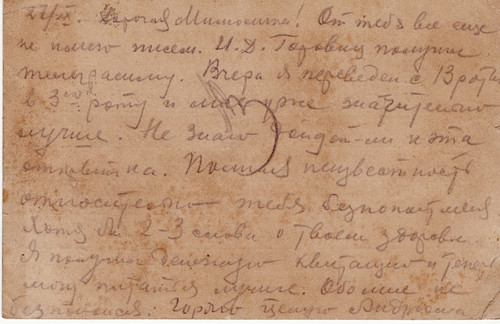 27/IX. Дорогая Милюсинка! От тебя все еще
не имею писем. И.Д. Горовиц получил
телеграмму. Вчера я переведен с 13 роты
в 3ью роту и мне уже значительно
лучше. Не знаю дойдет-ли и эта
открытка. Полная неизвестность
относительно тебя безпокоит меня
Хотя бы 2-3 слова о твоем здоровьи
Я получил денежную квитанцию и теперь
могу питаться лучше. Обо мне не
безпокойся. Горячо целую